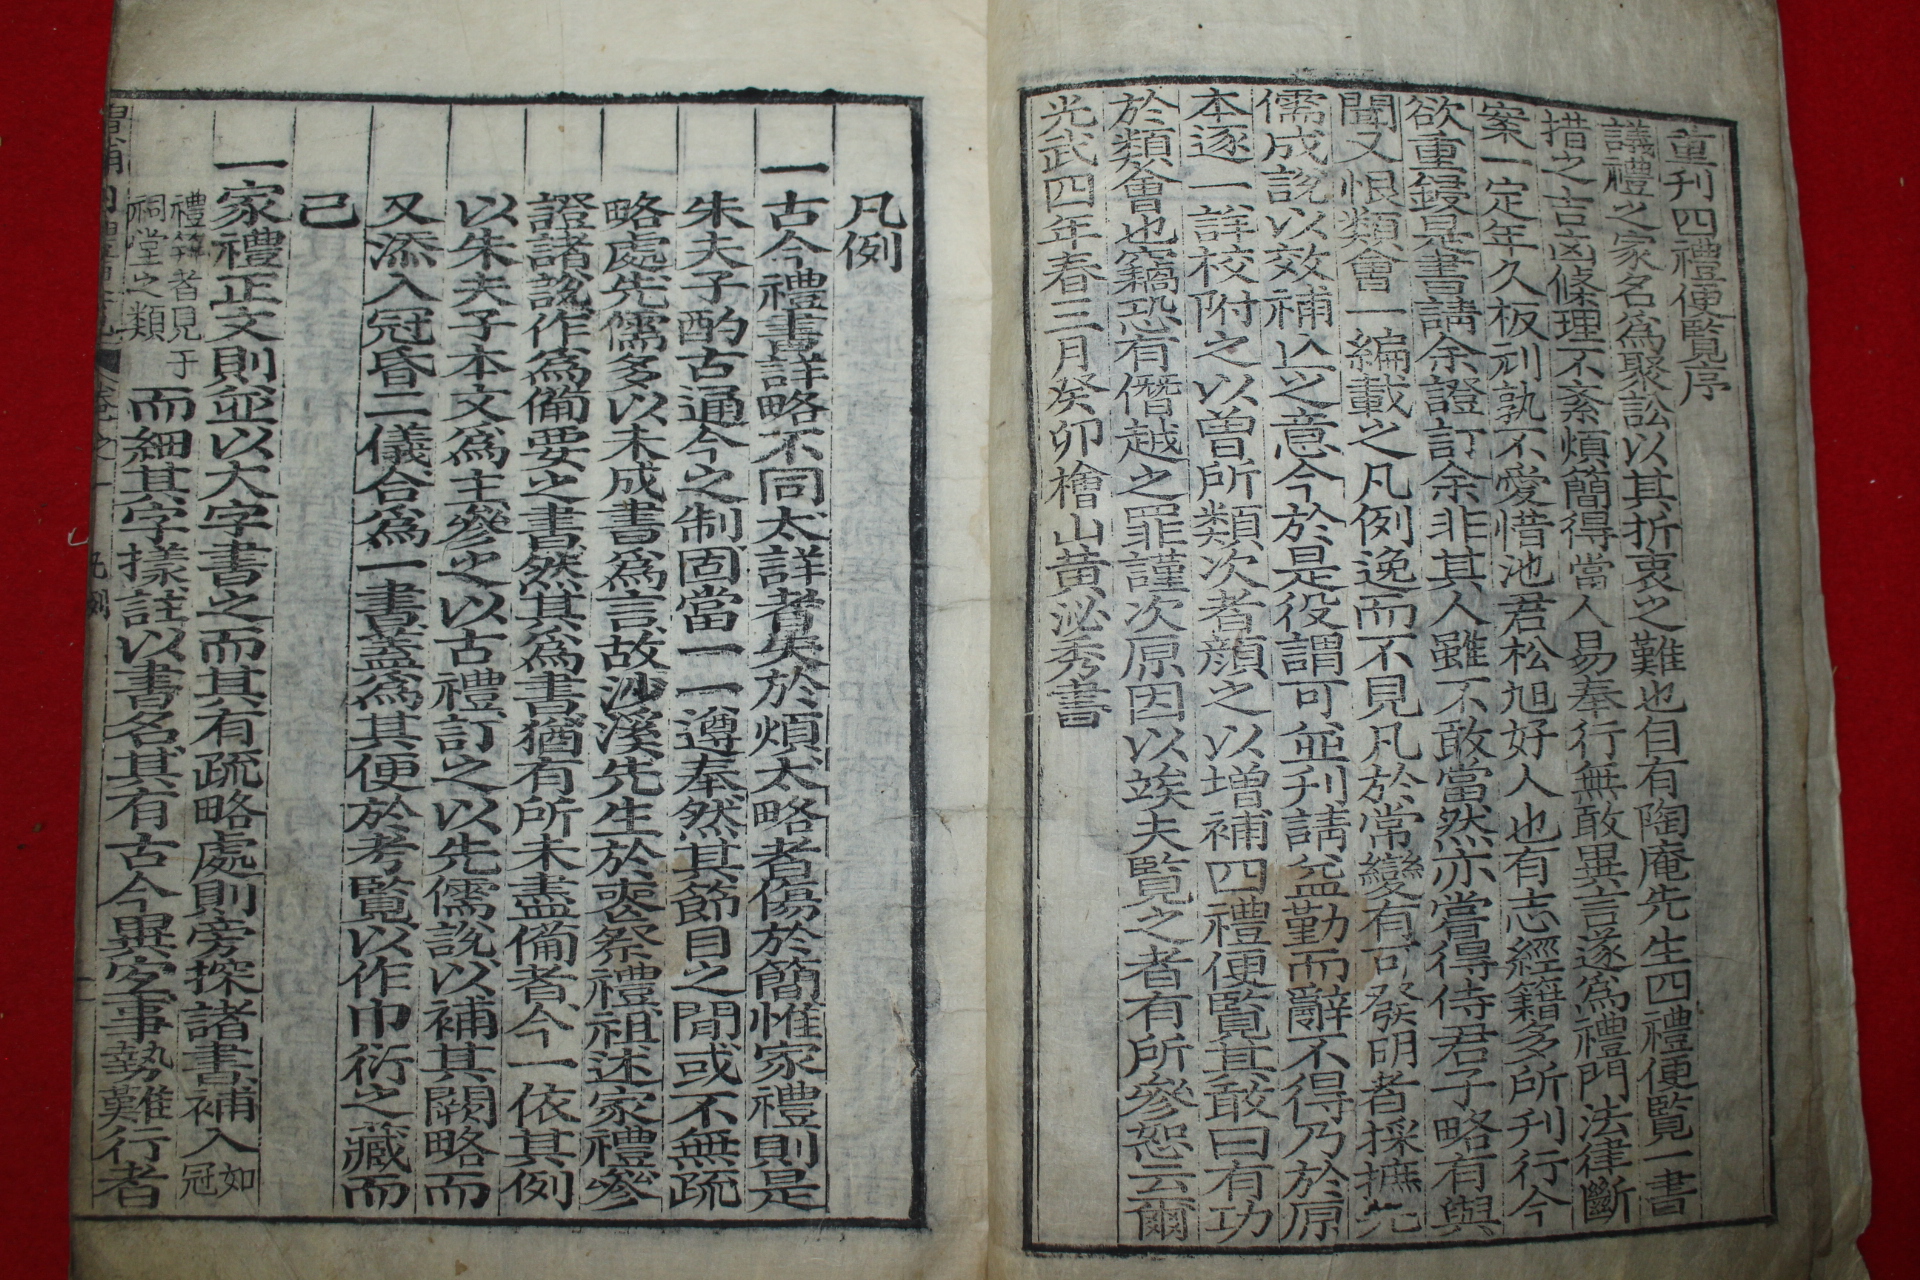 重刊四禮便覽序
議禮之家名爲聚訟以其折衷之難也自有陶庵先生四禮便覽一書
措之吉凶條理不紊煩簡得當人易奉行無敢異言遂爲禮門法律斷
案一定年久板刓孰不愛惜池君松旭好人也有志經籍多所刊行今
欲重鋟是書請余證訂余非其人雖不敢當然亦嘗得侍君子略有與
聞又恨類會一編載之凡例逸而不見凡於常變有可發明者採摭先
儒成說以效補亡之意今於是役謂可並刊請益勤而辭不得乃於原
本逐一詳校附之以曾所類次者顔之以增補四禮便覽其敢曰有功
於類會也竊恐有僭越之罪謹次原因以竢夫覽之者有所參恕云爾
光武四年春三月癸卯檜山黃泌秀書
凡例
一古今禮書詳略不同太詳者失於煩太略者傷於簡惟家禮則是
朱夫子酌古通今之制固當一一遵奉然其節目之間或不無疏
略處先儒多以未成書爲言故沙溪先生於喪祭禮祖述家禮參
證諸說作爲備要之書然其爲書猶有所未盡備者今一依其例
以朱夫子本文爲主參之以古禮訂之以先儒說以補其闕略而
又添入冠昏二儀合爲一書蓋爲其便於考覽以作巾衍之藏而
己
一家禮正文則並以大字書之而其有疏略處則旁探諸書補入如冠
禮筭者見于祠堂之類而細其字㨾註以書名其有古今異宜事勢難行者
卷之一
凡例